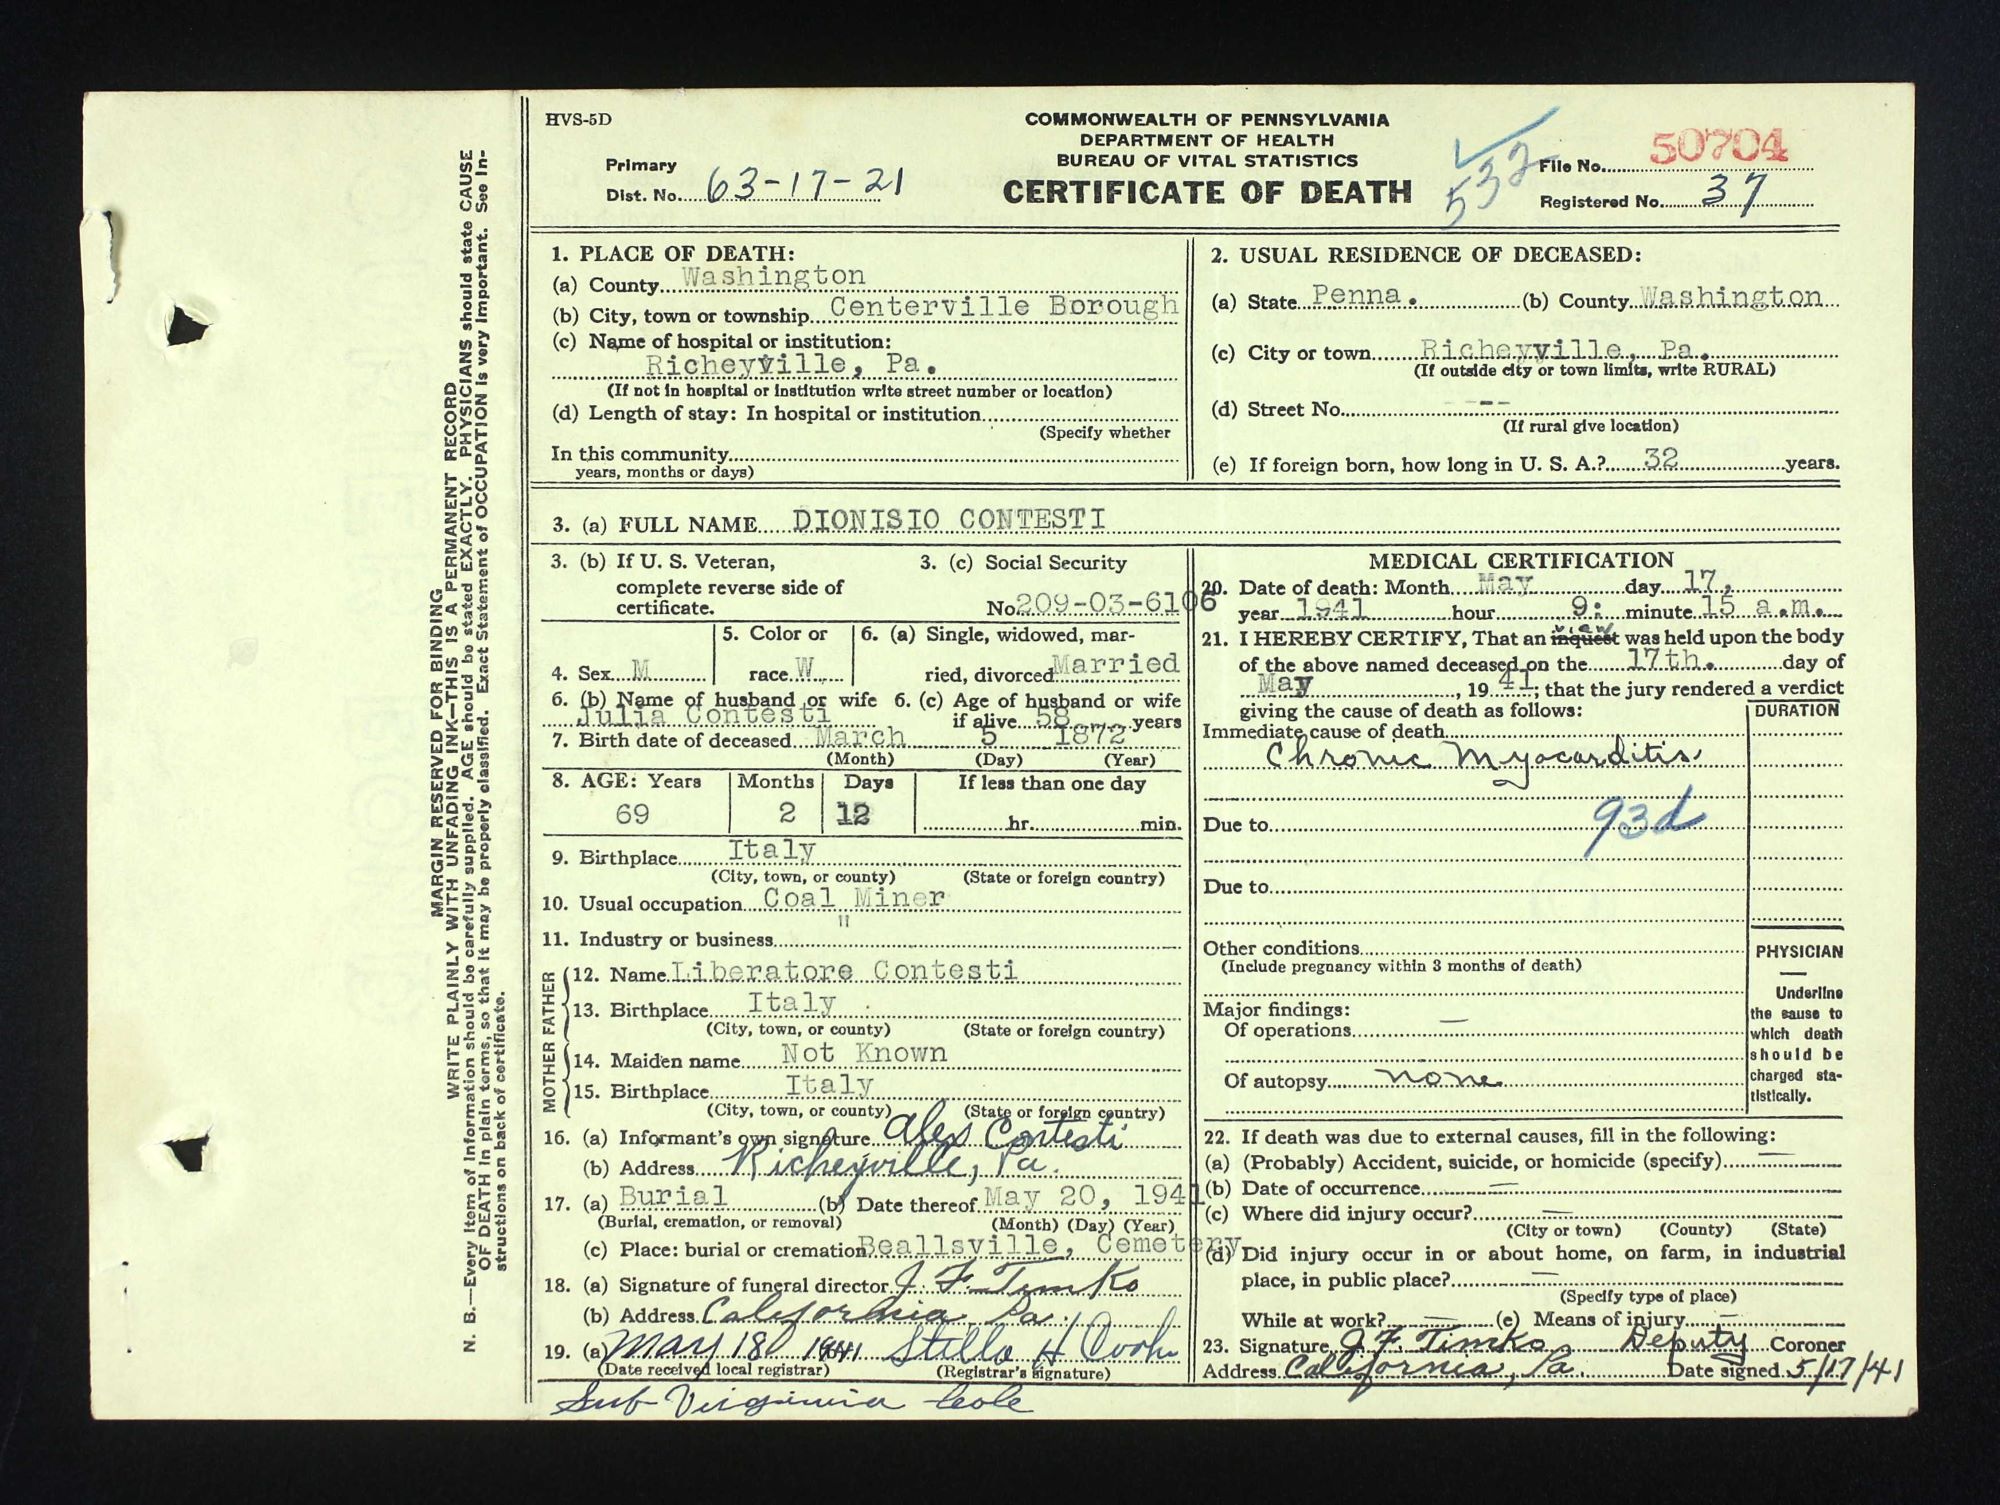 HVS-5D
COMMONWEALTH OF PENNSYLVANIA
DEPARTMENT OF HEALTH
BUREAU OF VITAL STATISTICS
CERTIFICATE OF DEATH
Primary
Dist. No. 63-17-21
532
File No. 50704
Registered No. 37
MARGIN RESERVED FOR BINDING
WRITE PLAINLY WITH UNFADING INK—THIS IS A PERMANENT RECORD
N. B.—Every item of information should be carefully supplied. AGE should be stated EXACTLY. PHYSICIANS should state CAUSE
OF DEATH in plain terms, so that it may be properly classified. Exact Statement of OCCUPATION is very important. See In-
structions on back of certificate.
1. PLACE OF DEATH:
(a) County Washington
(b) City, town or township Centerville Borough
(c) Name of hospital or institution:
Richeyville, Pa.
(If not in hospital or institution write street number or location)
(d) Length of stay: In hospital or institution
(Specify whether
In this community
years, months or days)
2. USUAL RESIDENCE OF DECEASED:
(a) State Penna. (b) County Washington
(c) City or town Richeyville, Pa.
(If outside city or town limits, write RURAL)
(d) Street No. ----
(If rural give location)
(e) If foreign born, how long in U. S. A.? 32 years.
3. (a) FULL NAME DIONISIO CONTESTI
3. (b) If U. S. Veteran,
complete reverse side of
certificate.
3. (c) Social Security
No 209-03-6106
4. Sex M
5. Color or
race W.
6. (a) Single, widowed, mar-
ried, divorced Married
6. (b) Name of husband or wife
Julia Contesti
6. (c) Age of husband or wife
if alive 58 years
7. Birth date of deceased March 5 1872
(Month) (Day) (Year)
8. AGE: Years Months Days If less than one day
69 2 12 hr. min.
9. Birthplace Italy
(City, town, or county) (State or foreign country)
10. Usual occupation Coal Miner
11. Industry or business "
FATHER
12. Name Liberatore Contesti
13. Birthplace Italy
(City, town, or county) (State or foreign country)
MOTHER
14. Maiden name Not Known
15. Birthplace Italy
(City, town, or county) (State or foreign country)
16. (a) Informant's own signature Alex Contesti
(b) Address Richeyville, Pa.
17. (a) Burial (b) Date thereof May 20, 1941
(Burial, cremation, or removal) (Month) (Day) (Year)
(c) Place: burial or cremation Beallsville, Cemetery
18. (a) Signature of funeral director J. F. Timko
(b) Address California Pa.
19. (a) May 18 1941 Stella H
(Date received local registrar) (Registrar's signature)
Sub Virginia Cole
MEDICAL CERTIFICATION
20. Date of death: Month May day 17,
year 1941 hour 9: minute 15 a.m.
21. I HEREBY CERTIFY, That an inquest view was held upon the body
of the above named deceased on the 17th. day of
May, 19 41; that the jury rendered a verdict
giving the cause of death as follows:
DURATION
Immediate cause of death
Chronic Myocarditis
93d
Due to
Due to
Other conditions
(Include pregnancy within 3 months of death)
Major findings:
Of operations —
Of autopsy none
PHYSICIAN
—
Underline
the cause to
which death
should be
charged sta-
tistically.
22. If death was due to external causes, fill in the following:
(a) (Probably) Accident, suicide, or homicide (specify) —
(b) Date of occurrence —
(c) Where did injury occur? —
(City or town) (County) (State)
(d) Did injury occur in or about home, on farm, in industrial
place, in public place? —
(Specify type of place)
While at work? — (e) Means of injury —
23. Signature J. F. Timko Deputy Coroner
Address California, Pa. Date signed 5/17/41